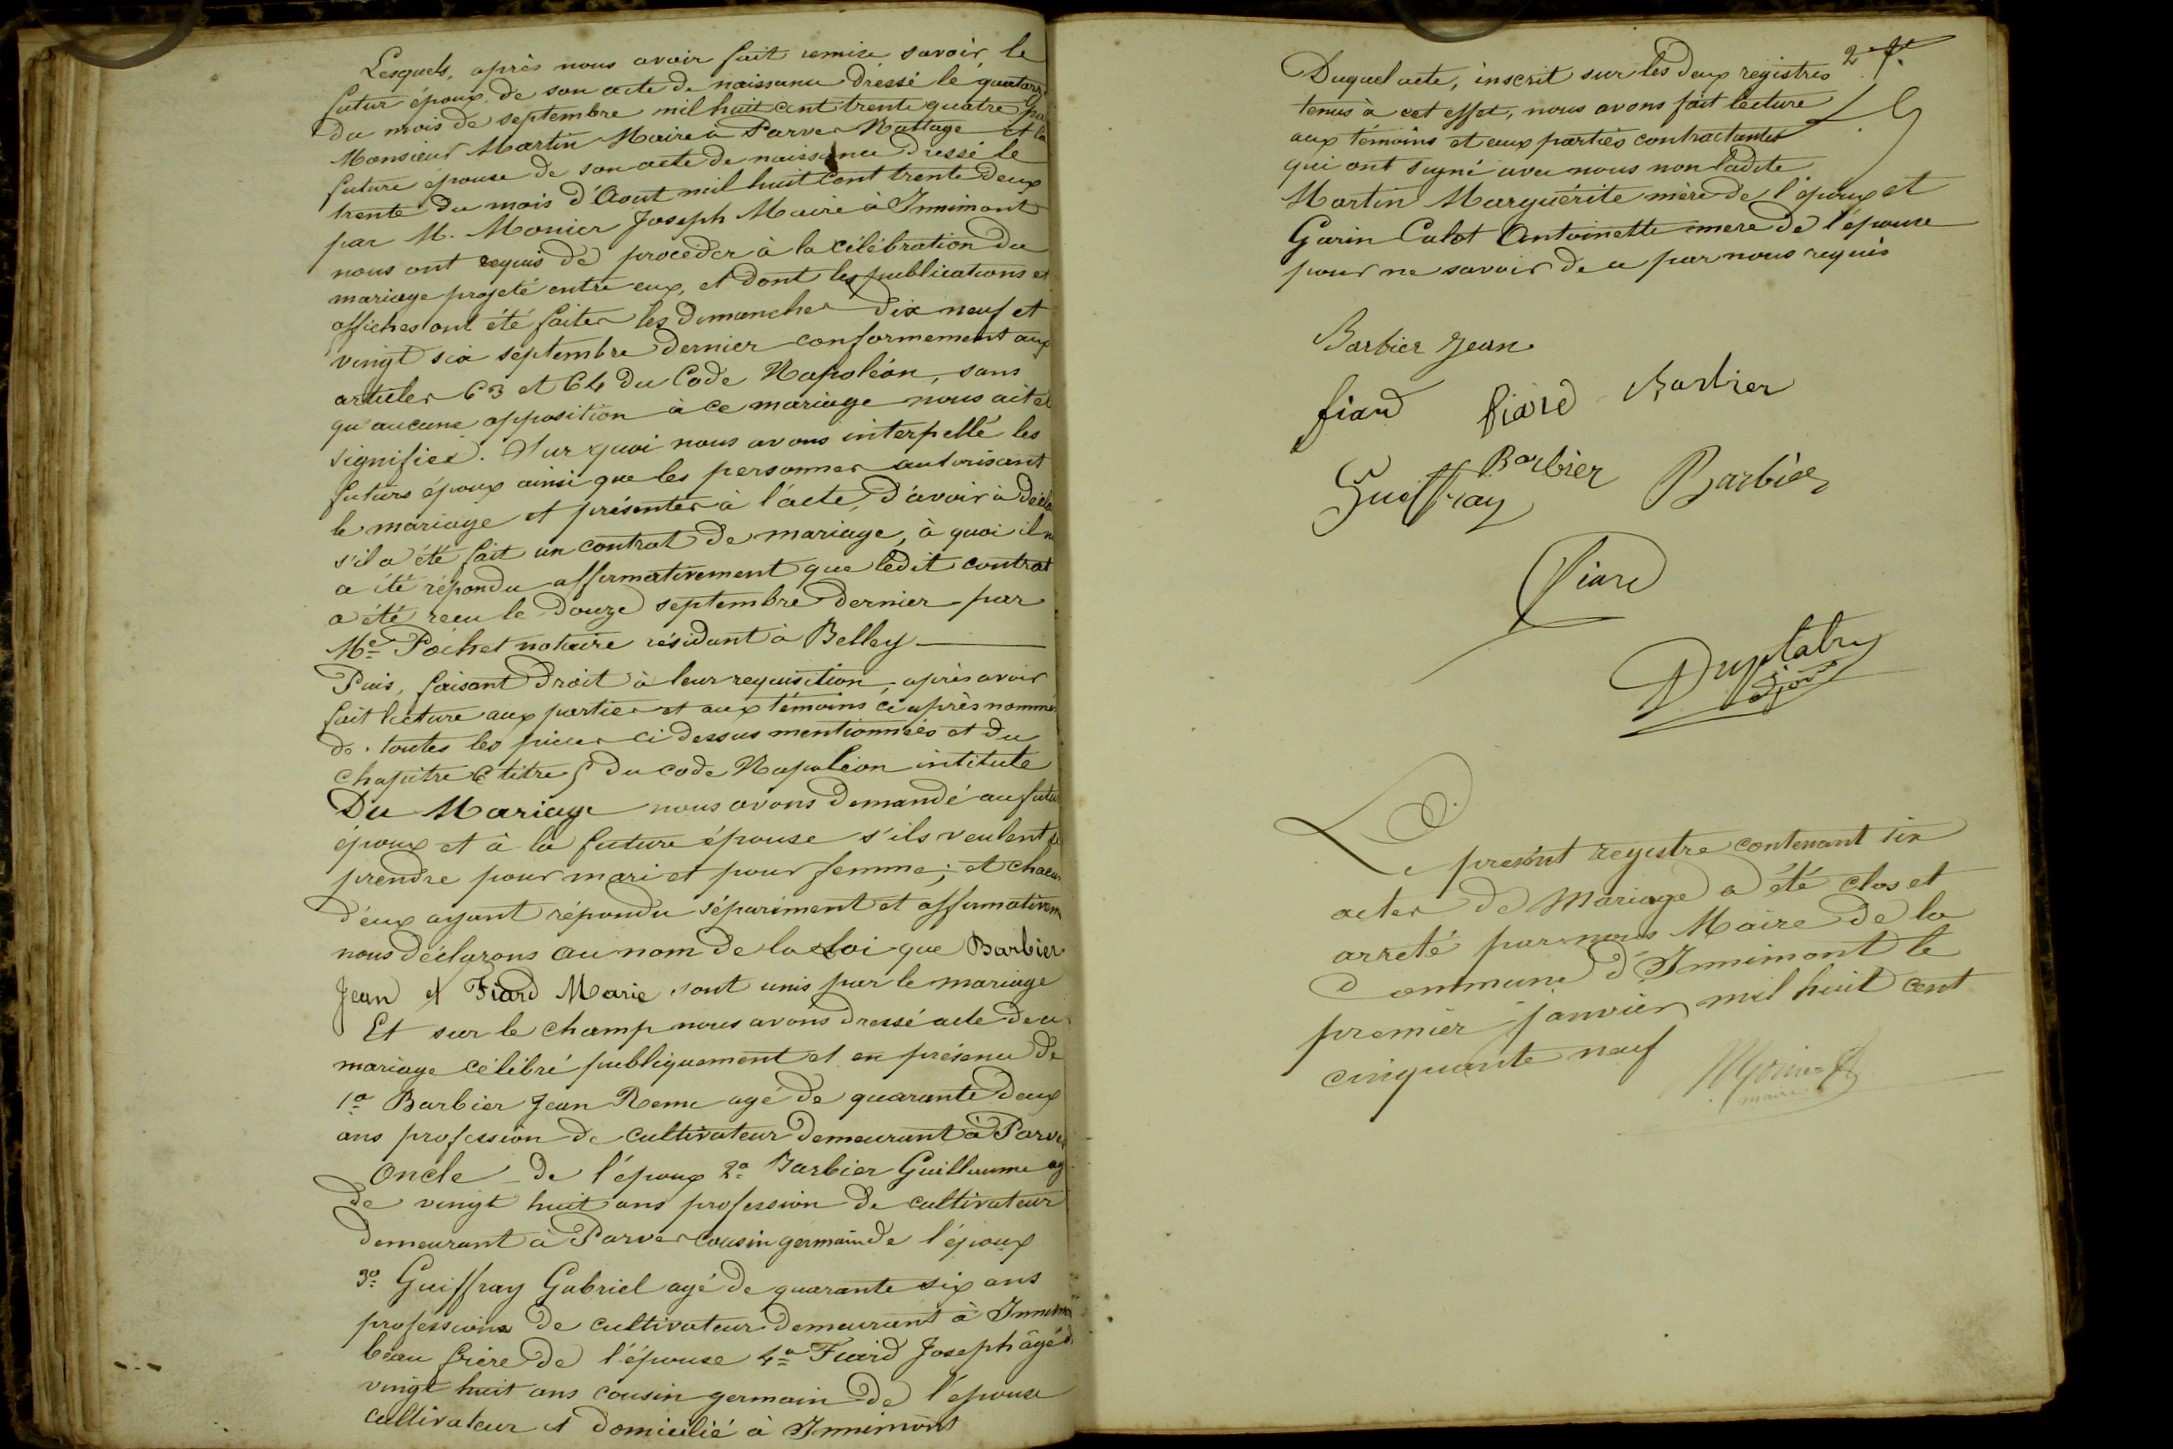 Lesquels, après nous avoir fait remise savoir le
futur époux de son acte de naissance dressé le quatorze
du mois de septembre mil huit cent trente quatre par
Monsieur Martin Maire à Parves Nattage et la
future épouse de son acte de naissance dressé le
trente du mois d'Aout mil huit cent trente deux
par M. Monier Joseph Maire à Innimont
nous ont requis de procéder à la célébration du
mariage projeté entre eux, et dont les publications et
affiches ont été faites les dimanches dix neuf et
vingt six septembre dernier conformement aux
articles 63 et 64 du Code Napoléon, sans
qu'aucune opposition à ce mariage nous ait été
signifiée. Sur quoi nous avons interpellé les
futurs époux ainsi que les personnes autorisant
le mariage et présentes à l'acte, d'avoir à décla
s'il a été fait un contrat de mariage, à quoi il n
a été répondu affirmativement que ledit contrat
a été recu le douze septembre dernier par
Me Pochet notaire résidant à Belley
Puis, faisant droit à leur requisition, après avoir
fait lecture aux parties et aux témoins ci après nommés
de toutes les pièces ci dessus mentionnées et du
chapitre 6 titre 5 du code Napoléon intitulé
Du Mariage nous avons demandé au futur
époux et à la future épouse s'ils veulent se
prendre pour mari et pour femme; et chacun
d'eux ayant répondu séparément et affirmativem
nous déclarons au nom de la loi que Barbier
Jean et Fiard Marie sont unis par le mariage
Et sur le champ nous avons dressé acte de ce
mariage célébré publiquement et en présence de
1o Barbier Jean Reme agé de quarante deux
ans profession de cultivateur demeurant à Parves
Oncle de l'époux 2o Barbier Guillaume ag
de vingt huit ans profession de cultivateur
demeurant à Parves cousin germain de l'époux
3o Guiffray Gabriel agé de quarante six ans
profession de cultivateur demeurant à Innimon
beau frère de l'épouse 4o Fiard Joseph âgé d
vingt huit ans cousin germain de l'épouse
cultivateur et domicilié à Innimont
2e ft
Duquel acte, inscrit sur les deux registres
tenus à cet effet, nous avons fait lecture
aux témoins et aux parties contractantes
qui ont signé avec nous non ladite
Martin Marguérite mère de l'époux et
Garin Calot Antoinette mere de l'épouse
pour ne savoir de ce par nous requis
Barbier Jean
fiard fiard Barbier
Guiffray Barbier Barbier
fiard
Duplatre
adjoint
Le présent registre contenant six
actes de Mariage a été clos et
arreté par nous Maire de la
Commune d'Innimont le
premier janvier mil huit cent
cinquante neuf
Monier
maire